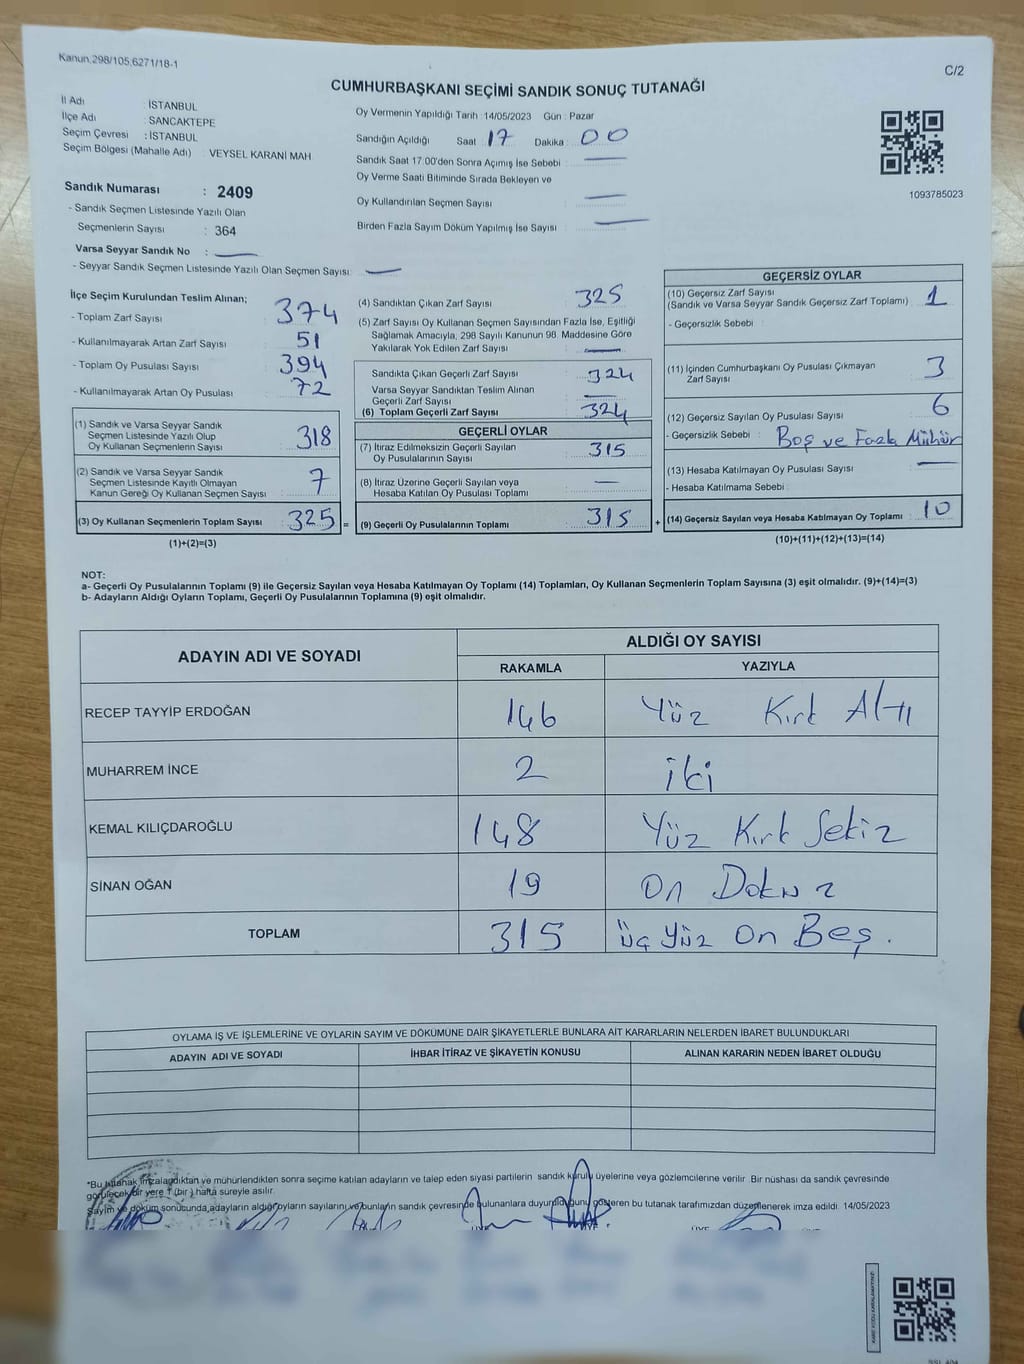 Kanun,298/105,6271/18-1
C/2
CUMHURBAŞKANI SEÇİMİ SANDIK SONUÇ TUTANAĞI
İl Adı : İSTANBUL
İlçe Adı : SANCAKTEPE
Seçim Çevresi : İSTANBUL
Seçim Bölgesi (Mahalle Adı) : VEYSEL KARANİ MAH
Sandık Numarası : 2409
- Sandık Seçmen Listesinde Yazılı Olan
Seçmenlerin Sayısı : 364
Varsa Seyyar Sandık No :
- Seyyar Sandık Seçmen Listesinde Yazılı Olan Seçmen Sayısı:
Oy Vermenin Yapıldığı Tarih :14/05/2023 Gün : Pazar
Sandığın Açıldığı Saat : 17 Dakika : 00
Sandık Saat 17:00'den Sonra Açımış İse Sebebi :
Oy Verme Saati Bitiminde Sırada Bekleyen ve
Oy Kullandırılan Seçmen Sayısı :
Birden Fazla Sayım Döküm Yapılmış İse Sayısı :
1093785023
İlçe Seçim Kurulundan Teslim Alınan;
- Toplam Zarf Sayısı : 374
- Kullanılmayarak Artan Zarf Sayısı : 51
- Toplam Oy Pusulası Sayısı : 394
- Kullanılmayarak Artan Oy Pusulası : 72
(1) Sandık ve Varsa Seyyar Sandık
Seçmen Listesinde Yazılı Olup
Oy Kullanan Seçmenlerin Sayısı : 318
(2) Sandık ve Varsa Seyyar Sandık
Seçmen Listesinde Kayıtlı Olmayan
Kanun Gereği Oy Kullanan Seçmen Sayısı : 7
(3) Oy Kullanan Seçmenlerin Toplam Sayısı : 325 =
(1)+(2)=(3)
(4) Sandıktan Çıkan Zarf Sayısı : 325
(5) Zarf Sayısı Oy Kullanan Seçmen Sayısından Fazla İse, Eşitliği
Sağlamak Amacıyla, 298 Sayılı Kanunun 98. Maddesine Göre
Yakılarak Yok Edilen Zarf Sayısı :
Sandıkta Çıkan Geçerli Zarf Sayısı : 324
Varsa Seyyar Sandıktan Teslim Alınan
Geçerli Zarf Sayısı :
(6) Toplam Geçerli Zarf Sayısı : 324
GEÇERLİ OYLAR
(7) İtiraz Edilmeksizin Geçerli Sayılan
Oy Pusulalarının Sayısı : 315
(8) İtiraz Üzerine Geçerli Sayılan veya
Hesaba Katılan Oy Pusulası Toplamı :
(9) Geçerli Oy Pusulalarının Toplamı : 315 +
GEÇERSİZ OYLAR
(10) Geçersiz Zarf Sayısı
(Sandık ve Varsa Seyyar Sandık Geçersiz Zarf Toplamı) : 1
- Geçersizlik Sebebi :
(11) İçinden Cumhurbaşkanı Oy Pusulası Çıkmayan
Zarf Sayısı : 3
(12) Geçersiz Sayılan Oy Pusulası Sayısı : 6
- Geçersizlik Sebebi : Boş ve Fazla Mühür
(13) Hesaba Katılmayan Oy Pusulası Sayısı :
- Hesaba Katılmama Sebebi :
(14) Geçersiz Sayılan veya Hesaba Katılmayan Oy Toplamı : 10
(10)+(11)+(12)+(13)=(14)
NOT:
a- Geçerli Oy Pusulalarının Toplamı (9) ile Geçersiz Sayılan veya Hesaba Katılmayan Oy Toplamı (14) Toplamları, Oy Kullanan Seçmenlerin Toplam Sayısına (3) eşit olmalıdır. (9)+(14)=(3)
b- Adayların Aldığı Oyların Toplamı, Geçerli Oy Pusulalarının Toplamına (9) eşit olmalıdır.
ADAYIN ADI VE SOYADI
ALDIĞI OY SAYISI
RAKAMLA YAZIYLA
RECEP TAYYİP ERDOĞAN 146 Yüz Kırk Altı
MUHARREM İNCE 2 iki
KEMAL KILIÇDAROĞLU 148 Yüz Kırk Sekiz
SİNAN OĞAN 19 On Dokuz
TOPLAM 315 üç Yüz On Beş.
OYLAMA İŞ VE İŞLEMLERİNE VE OYLARIN SAYIM VE DÖKÜMÜNE DAİR ŞİKAYETLERLE BUNLARA AİT KARARLARIN NELERDEN İBARET BULUNDUKLARI
ADAYIN ADI VE SOYADI İHBAR İTİRAZ VE ŞİKAYETİN KONUSU ALINAN KARARIN NEDEN İBARET OLDUĞU
*Bu tutanak imzalandıktan ve mühürlendikten sonra seçime katılan adayların ve talep eden siyasi partilerin sandık kurulu üyelerine veya gözlemcilerine verilir Bir nüshası da sandık çevresinde
görülecek bir yere 1 (bir) hafta süreyle asılır.
Sayım ve döküm sonucunda,adayların aldığı oyların sayılarını ve bunların sandık çevresinde bulunanlara duyurulduğunu gösteren bu tutanak tarafımızdan düzenlenerek imza edildi 14/05/2023